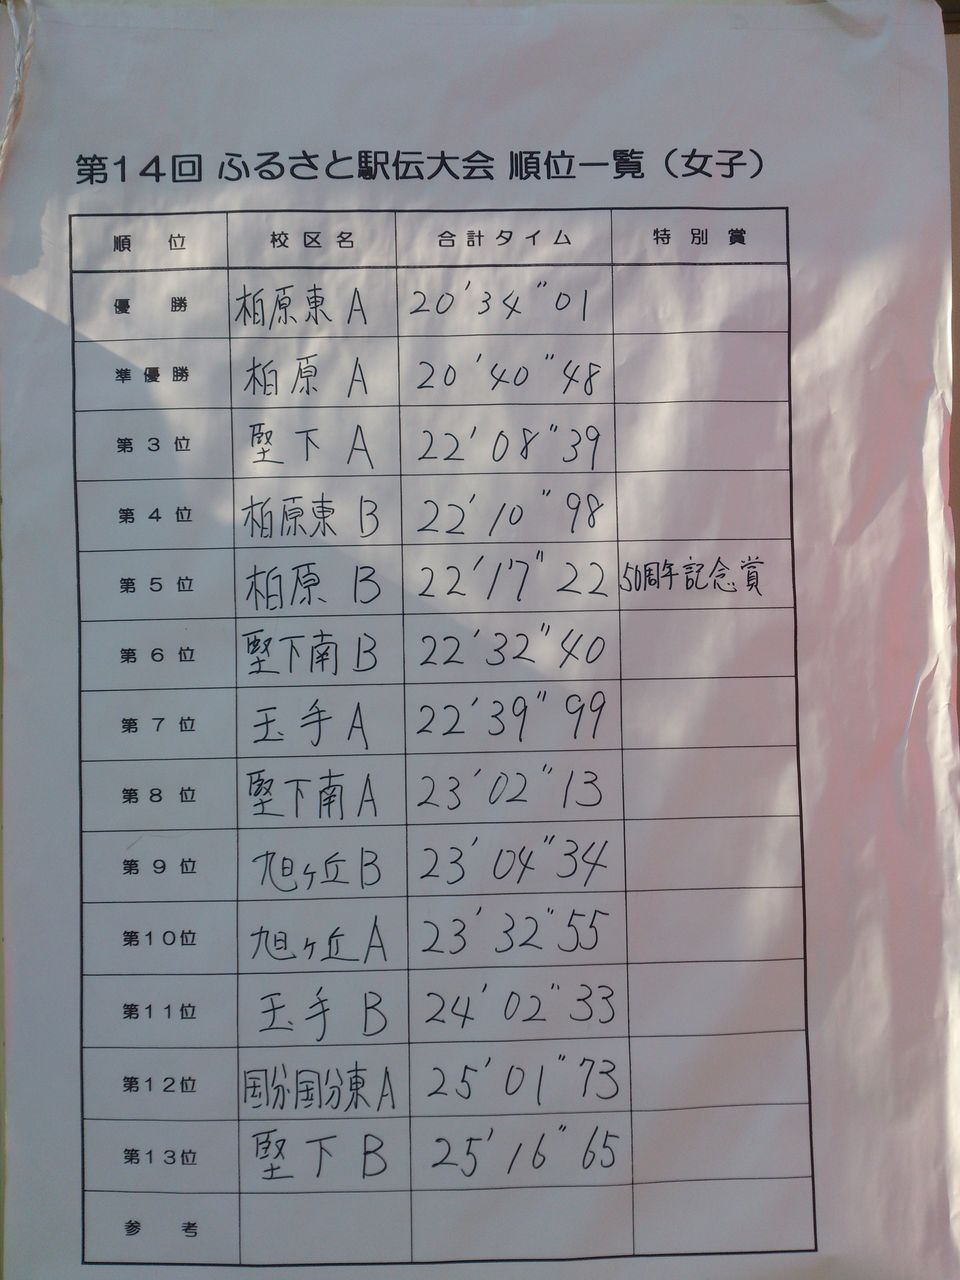 第14回 ふるさと駅伝大会 順位一覧（女子）
順位 校区名 合計タイム 特別賞
優勝 柏原東 A 20'34"01
準優勝 柏原 A 20'40"48
第3位 堅下 A 22'08"39
第4位 柏原東 B 22'10"98
第5位 柏原 B 22'17"22 50周年記念賞
第6位 堅下南 B 22'32"40
第7位 玉手 A 22'39"99
第8位 堅下南 A 23'02"13
第9位 旭ヶ丘 B 23'04"34
第10位 旭ヶ丘 A 23'32"55
第11位 玉手 B 24'02"33
第12位 国分・国分東 A 25'01"73
第13位 堅下 B 25'16"65
参考